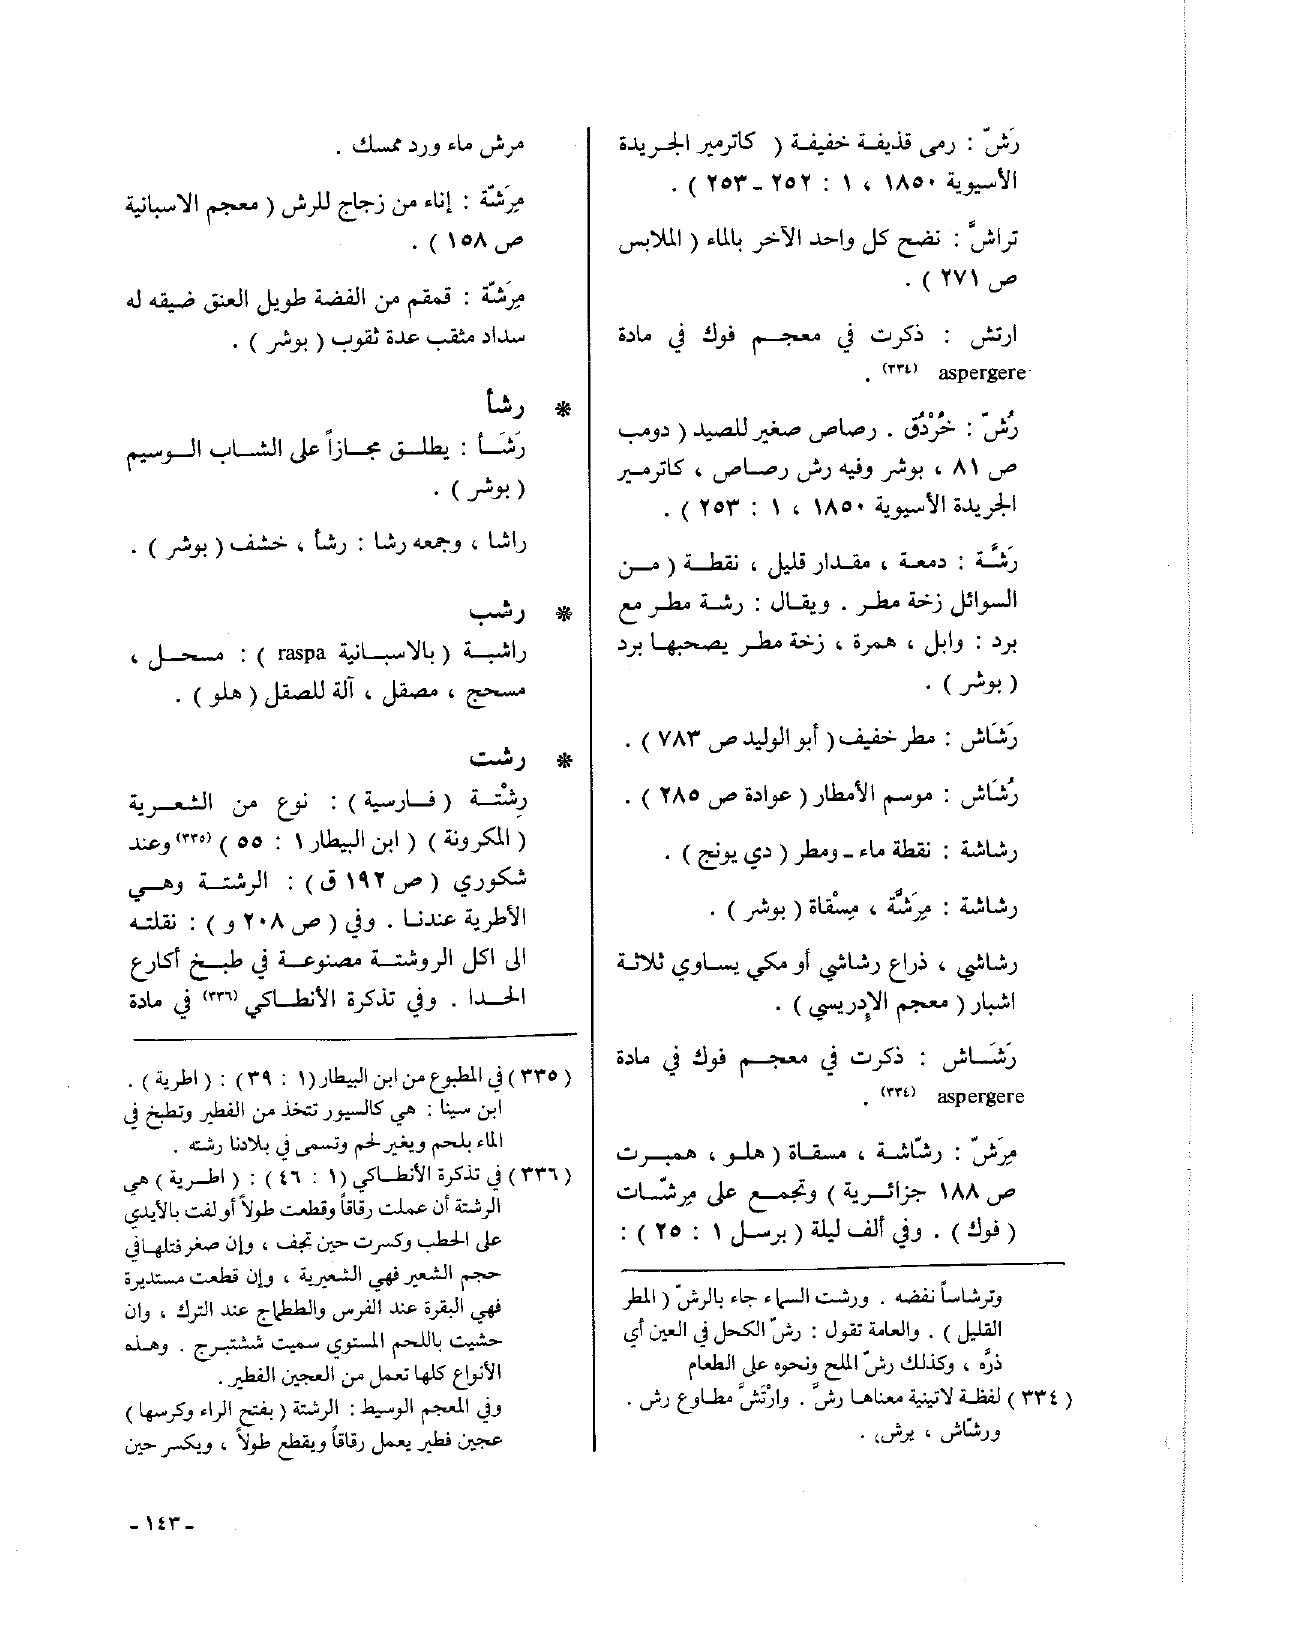 رَشّ : رمى قذيفة خفيفة ( كاترمير الجريدة
الأسيوية ١٨٥٠ ، ١ : ٢٥٢ ـ ٢٥٣ ) .
تراشَّ : نضح كل واحد الآخر بالماء ( الملابس
ص ٢٧١ ) .
ارتش : ذكرت في معجم فوك في مادة
aspergere (٣٣٤) .
رُشّ : خُرْدُق . رصاص صغير للصيد ( دومب
ص ٨١ ، بوشر وفيه رش رصاص ، كاترمير
الجريدة الأسيوية ١٨٥٠ ، ١ : ٢٥٣ ) .
رَشَّة : دمعة ، مقدار قليل ، نقطة ( من
السوائل زخة مطر . ويقال : رشة مطر مع
برد : وابل ، همرة ، زخة مطر يصحبها برد
( بوشر ) .
رَشَاش : مطر خفيف ( أبو الوليد ص ٧٨٣ ) .
رُشَاش : موسم الأمطار ( عوادة ص ٢٨٥ ) .
رشاشة : نقطة ماء ـ ومطر ( دي يونج ) .
رشاشة : مِرَشَّة ، مِسْقاة ( بوشر ) .
رشاشي ، ذراع رشاشي أو مكي يساوي ثلاثة
اشبار ( معجم الإدريسي ) .
رَشَاش : ذكرت في معجم فوك في مادة
aspergere (٣٣٤) .
مِرَشّ : رشّاشة ، مسقاة ( هلو ، همبرت
ص ١٨٨ جزائرية ) وتجمع على مِرشّات
( فوك ) . وفي ألف ليلة ( برسل ١ : ٢٥ ) :
وترشاساً نفضه . ورشت السماء جاء بالرشّ ( المطر
القليل ) . والعامة تقول : رشّ الكحل في العين أي
ذرَّه ، وكذلك رشّ الملح ونحوه على الطعام
( ٣٣٤ ) لفظة لاتينية معناها رشَّ . وارْتَشَّ مطاوع رش .
ورشّاش ، يرش، .
مرش ماء ورد ممسك .
مِرَشّة : إناء من زجاج للرش ( معجم الاسبانية
ص ١٥٨ ) .
مِرَشّة : قمقم من الفضة طويل العنق ضيقه له
سداد مثقب عدة ثقوب ( بوشر ) .
* رشأ
رَشَأ : يطلق مجازاً على الشاب الوسيم
( بوشر ) .
راشا ، وجمعه رشا : رشأ ، خشف ( بوشر ) .
* رشب
راشبة ( بالاسبانية raspa ) : مسحل ،
مسحج ، مصقل ، آلة للصقل ( هلو ) .
* رشت
رِشْتة ( فارسية ) : نوع من الشعرية
( المكرونة ) ( ابن البيطار ١ : ٥٥ ) (٣٣٥) وعند
شكوري ( ص ١٩٢ ق ) : الرشتة وهي
الأطرية عندنا . وفي ( ص ٢٠٨ و ) : نقلته
الى اكل الروشتة مصنوعة في طبخ أكارع
الجدا . وفي تذكرة الأنطاكي (٣٣٦) في مادة
( ٣٣٥ ) في المطبوع من ابن البيطار (١ : ٣٩) : ( اطرية ) .
ابن سينا : هي كالسيور تتخذ من الفطير وتطبخ في
الماء بلحم وبغير لحم وتسمى في بلادنا رشته .
( ٣٣٦ ) في تذكرة الأنطاكي (١ : ٤٦) : ( اطرية ) هي
الرشتة أن عملت رقاقاً وقطعت طولاً أو لفت بالأيدي
على الحطب وكسرت حين تجف ، وإن صغر فتلها في
حجم الشعير فهي الشعيرية ، وإن قطعت مستديرة
فهي البقرة عند الفرس والططماج عند الترك ، وان
حشيت باللحم المستوي سميت ششبرج . وهذه
الأنواع كلها تعمل من العجين الفطير .
وفي المعجم الوسيط : الرشتة ( بفتح الراء وكرسها )
عجين فطير يعمل رقاقاً ويقطع طولاً ، ويكسر حين
ـ ١٤٣ ـ